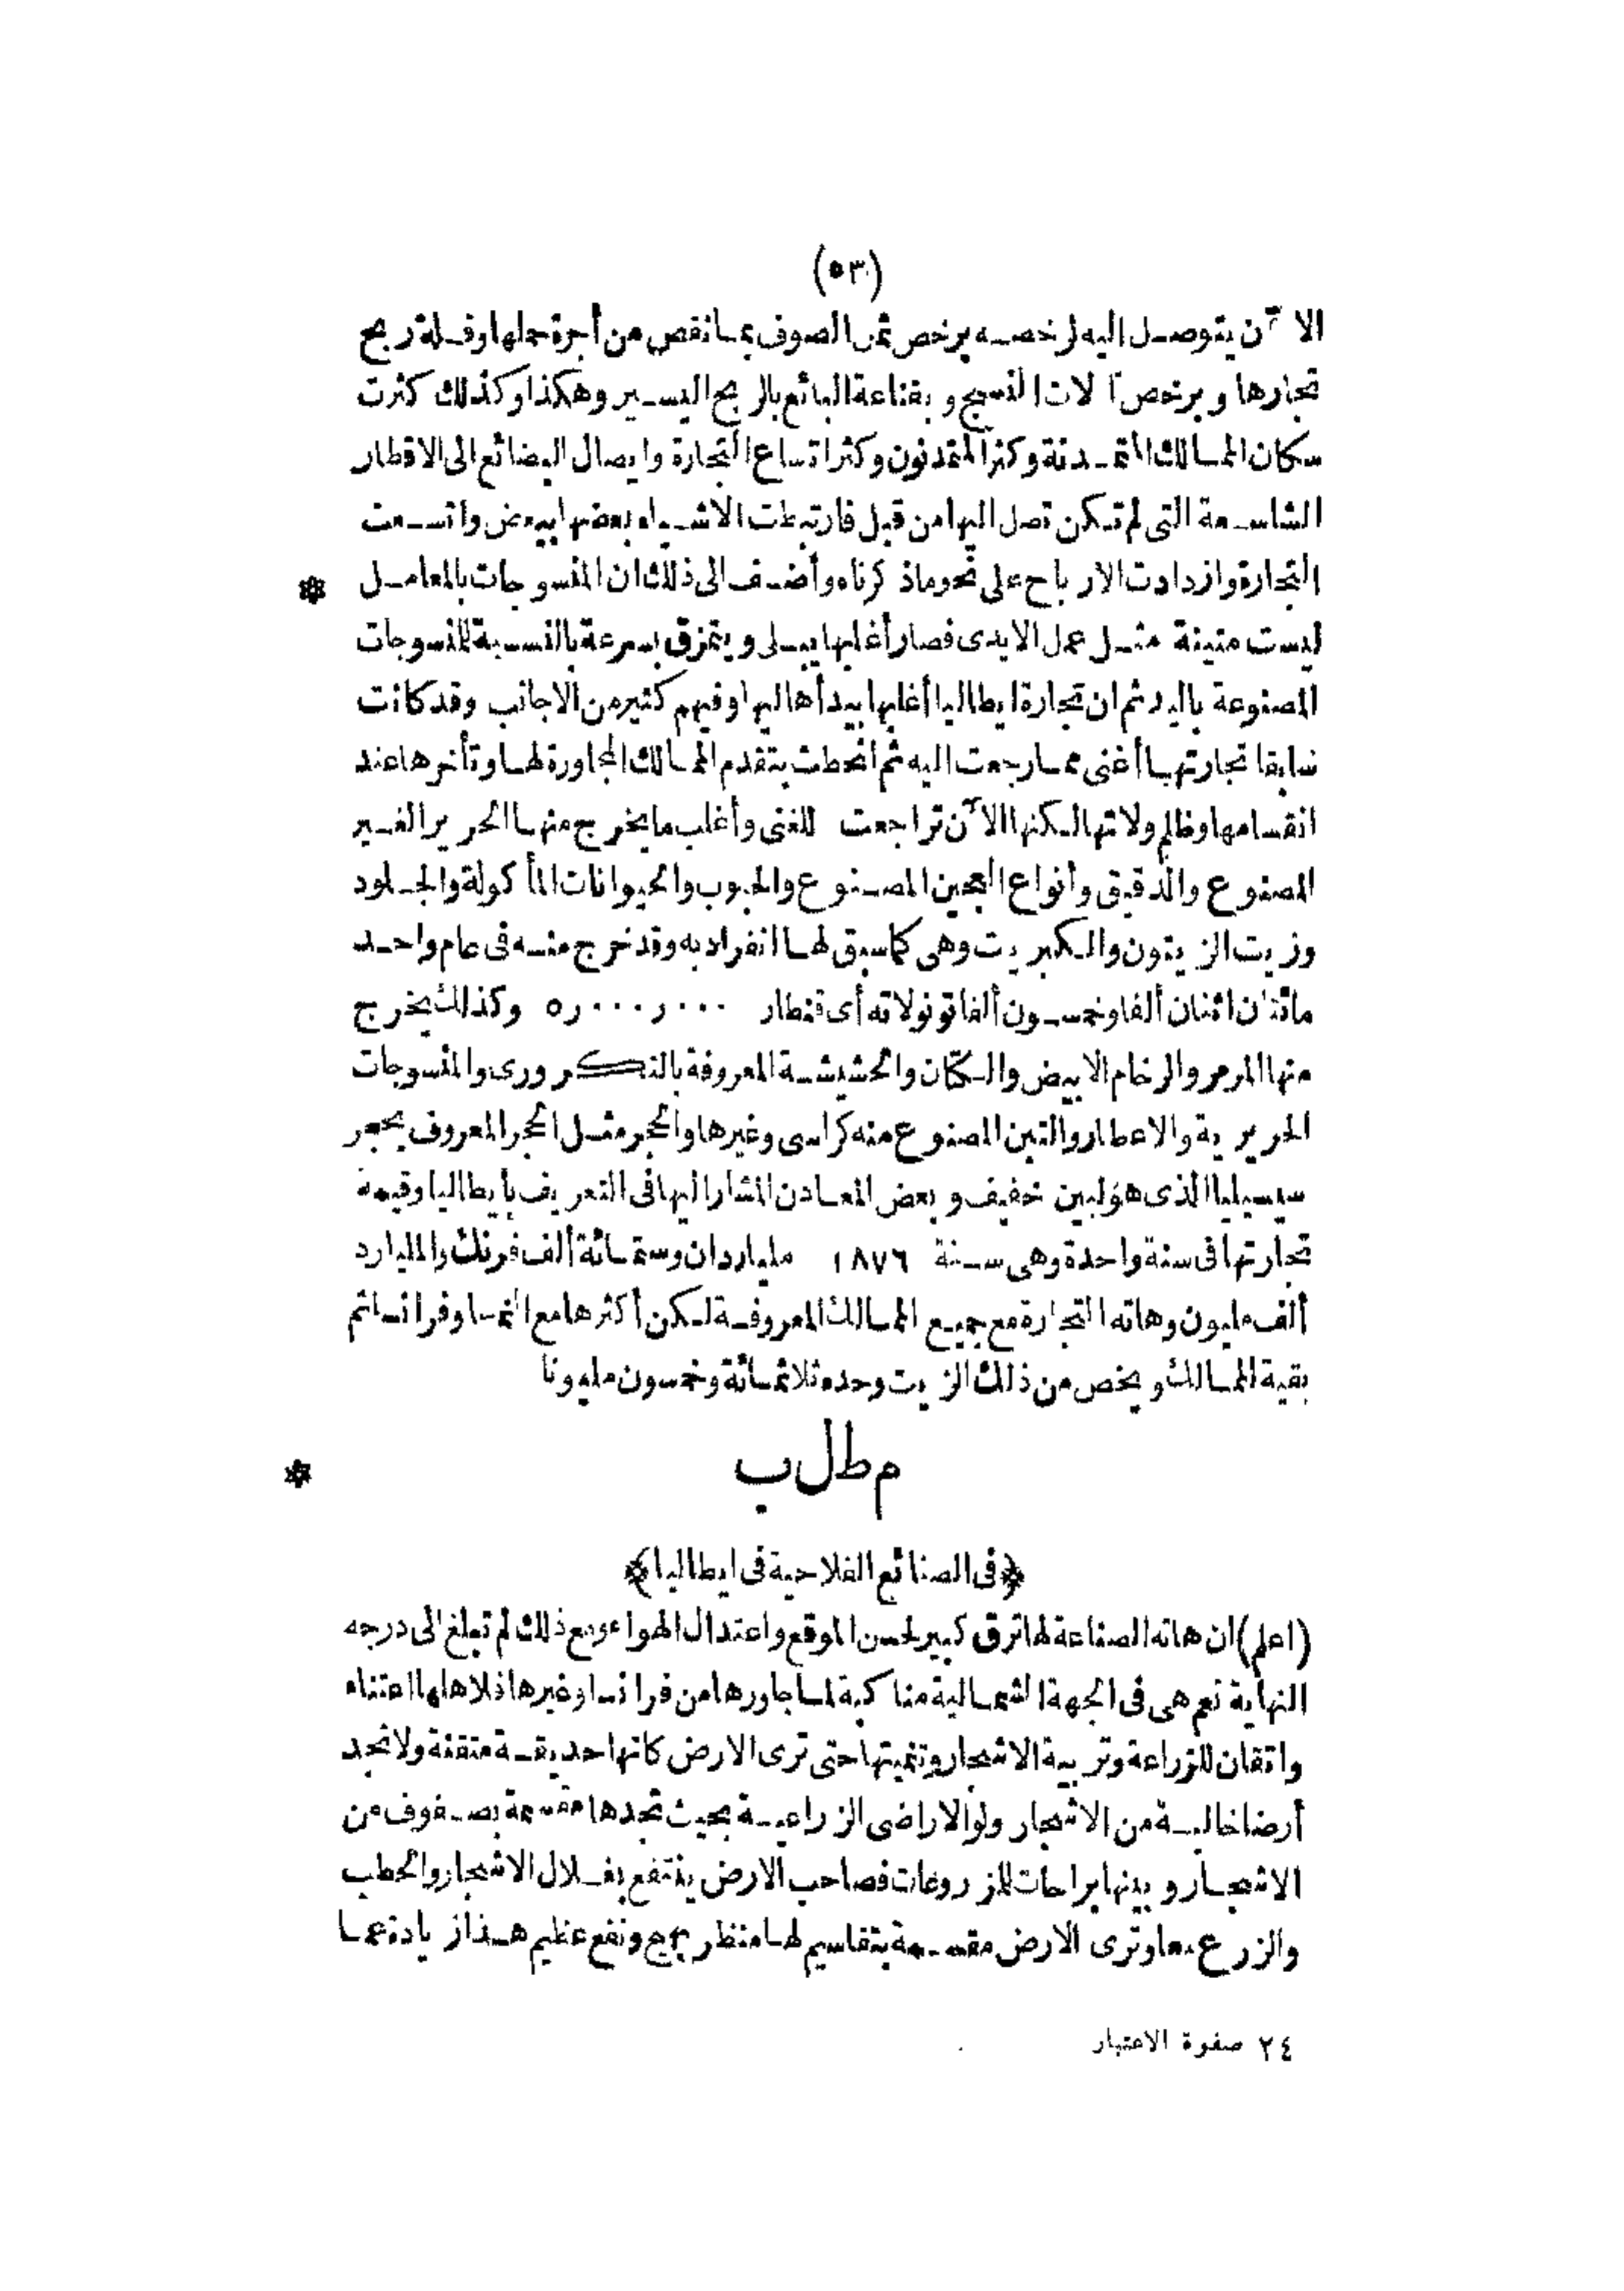 (٥٣)
الآن يتوصل اليه لرخصه برخص ثمن الصوف بما نقص من أجرة حملها وقلة ربح
تجارها وبرخص آلات النسج وبقناعة البائع بالربح اليسير وهكذا وكذلك كثرت
سكان الممالك المتمدنة وكثر المتمدنون وكثر اتساع التجارة وايصال البضائع الى الاقطار
الشاسعة التى لم تكن تصل اليها من قبل فارتبطت الاشياء بعضها ببعض واتسعت
التجارة وازدادت الارباح على نحو ماذكرناه وأضف الى ذلك ان المنسوجات بالمعامل *
ليست متينة مثل عمل الايدى فصار أغلبها يبلى ويتمزق بسرعة بالنسبة للمنسوجات
المصنوعة باليد ثم ان تجارة ايطاليا أغلبها بيد أهاليها وفيهم كثير من الاجانب وقد كانت
سابقا تجارتها أغنى مما رجعت اليه ثم انحطت بتقدم الممالك المجاورة لها وتأخرها عند
انقسامها وظلم ولاتها لكنها الآن تراجعت للغنى وأغلب ما يخرج منها الحرير الغير
المصنوع والدقيق وأنواع العجين المصنوع والحبوب والحيوانات المأكولة والجلود
وزيت الزيتون والكبريت وهى كما سبق لها انفراد به وقد خرج منه فى عام واحد
مائتان اثنان ألفا وخمسون ألفا تونولاته أى قنطار ٥٫٠٠٠٫٠٠٠ وكذلك يخرج
منها المرمر والرخام الابيض والكتان والحشيشة المعروفة بالتكرورى والمنسوجات
الحريرية والاعطار والتبن المصنوع منه كراسى وغيرها والحجر مثل الحجر المعروف بحجر
سيسيليا الذى هو لبين خفيف وبعض المعادن المشار اليها فى التعريف بأيطاليا وقيمة
تجارتها فى سنة واحدة وهى سنة ١٨٧٦ ملياردان وستمائة ألف فرنك والمليارد
ألف مليون وهاته التجارة مع جميع الممالك المعروفة لكن أكثرها مع النمسا وفرانسا ثم
بقية الممالك ويخص من ذلك الزيت وحده ثلاثمائة وخمسون مليونا
مطلب *
﴿فى الصنائع الفلاحية فى ايطاليا﴾
(اعلم) ان هاته الصناعة لها ترق كبير لحسن الموقع واعتدال الهواء ومع ذلك لم تبلغ الى درجه
النهاية نعم هى فى الجهة الشمالية مناكبة لما جاورها من فرانسا وغيرها اذ لاهلها اعتناء
واتقان للزراعة وتربية الاشجار وتنميتها حتى ترى الارض كانها حديقة متقنة ولا تجد
أرضا خالية من الاشجار ولو الاراضى الزراعية بحيث تجدها مقسمة بصفوف من
الاشجار وبينها براحات للمزروعات فصاحب الارض ينتفع بغلال الاشجار والحطب
والزرع معا وترى الارض مقسمة بتقاسيم لها منظر بهج ونفع عظيم هذا زيادة عما
٢٤ صفوة الاعتبار